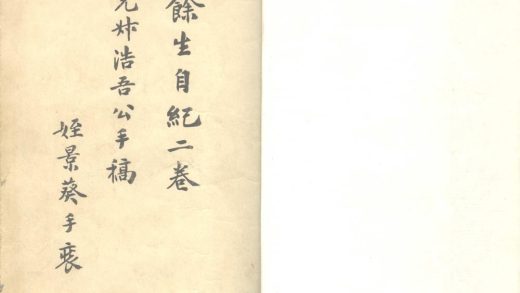 餘生自紀二卷
先叔浩吾公手稿
姪景葵手裝